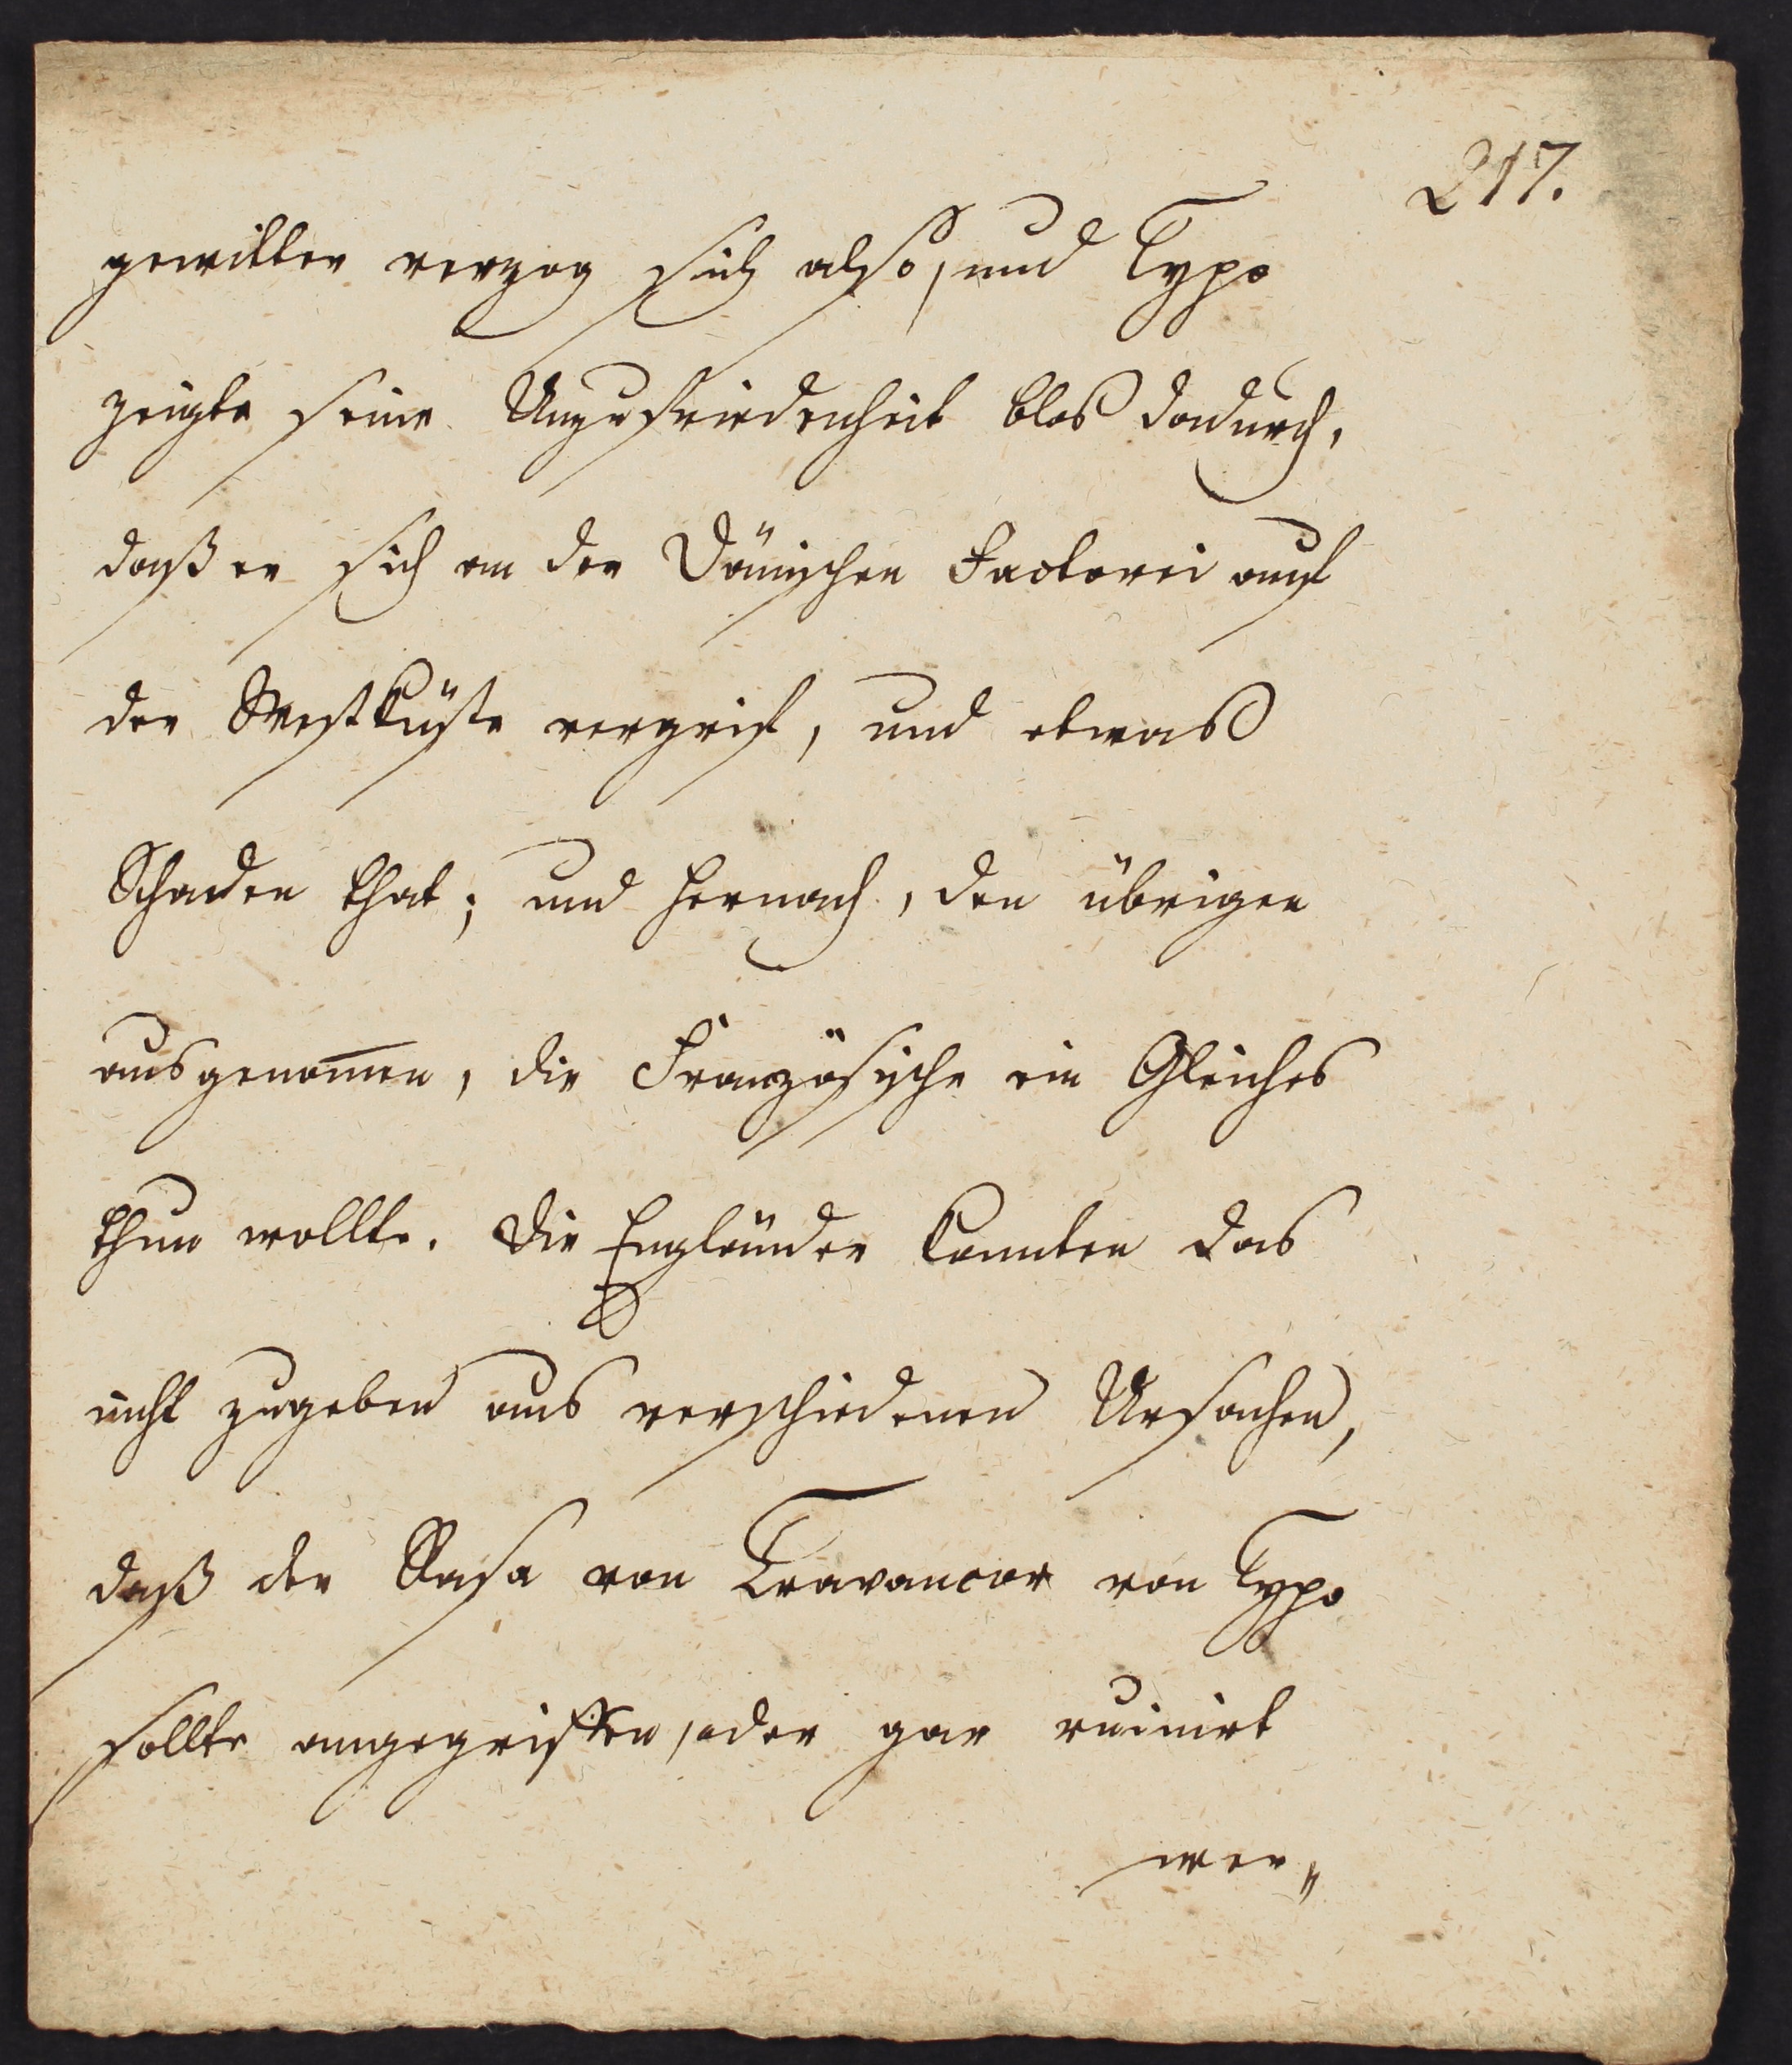 217.
gewitter verzog sich also, und Typo
zeigte seine Unzufriedenheit blos dadurch,
daß er sich an der Dänischen Factorei auf
der Westküste vergrif, und etwas
Schaden that; und hernach, den übrigen
ausgenom̅en, die Französische ein Gleiches
thun wollte. Die Engländer konnten das
nicht zugeben aus verschiedenen Ursachen,
daß der Rasa von Travancor von Typo
sollte angegriffen, oder gar ruinirt
wer„